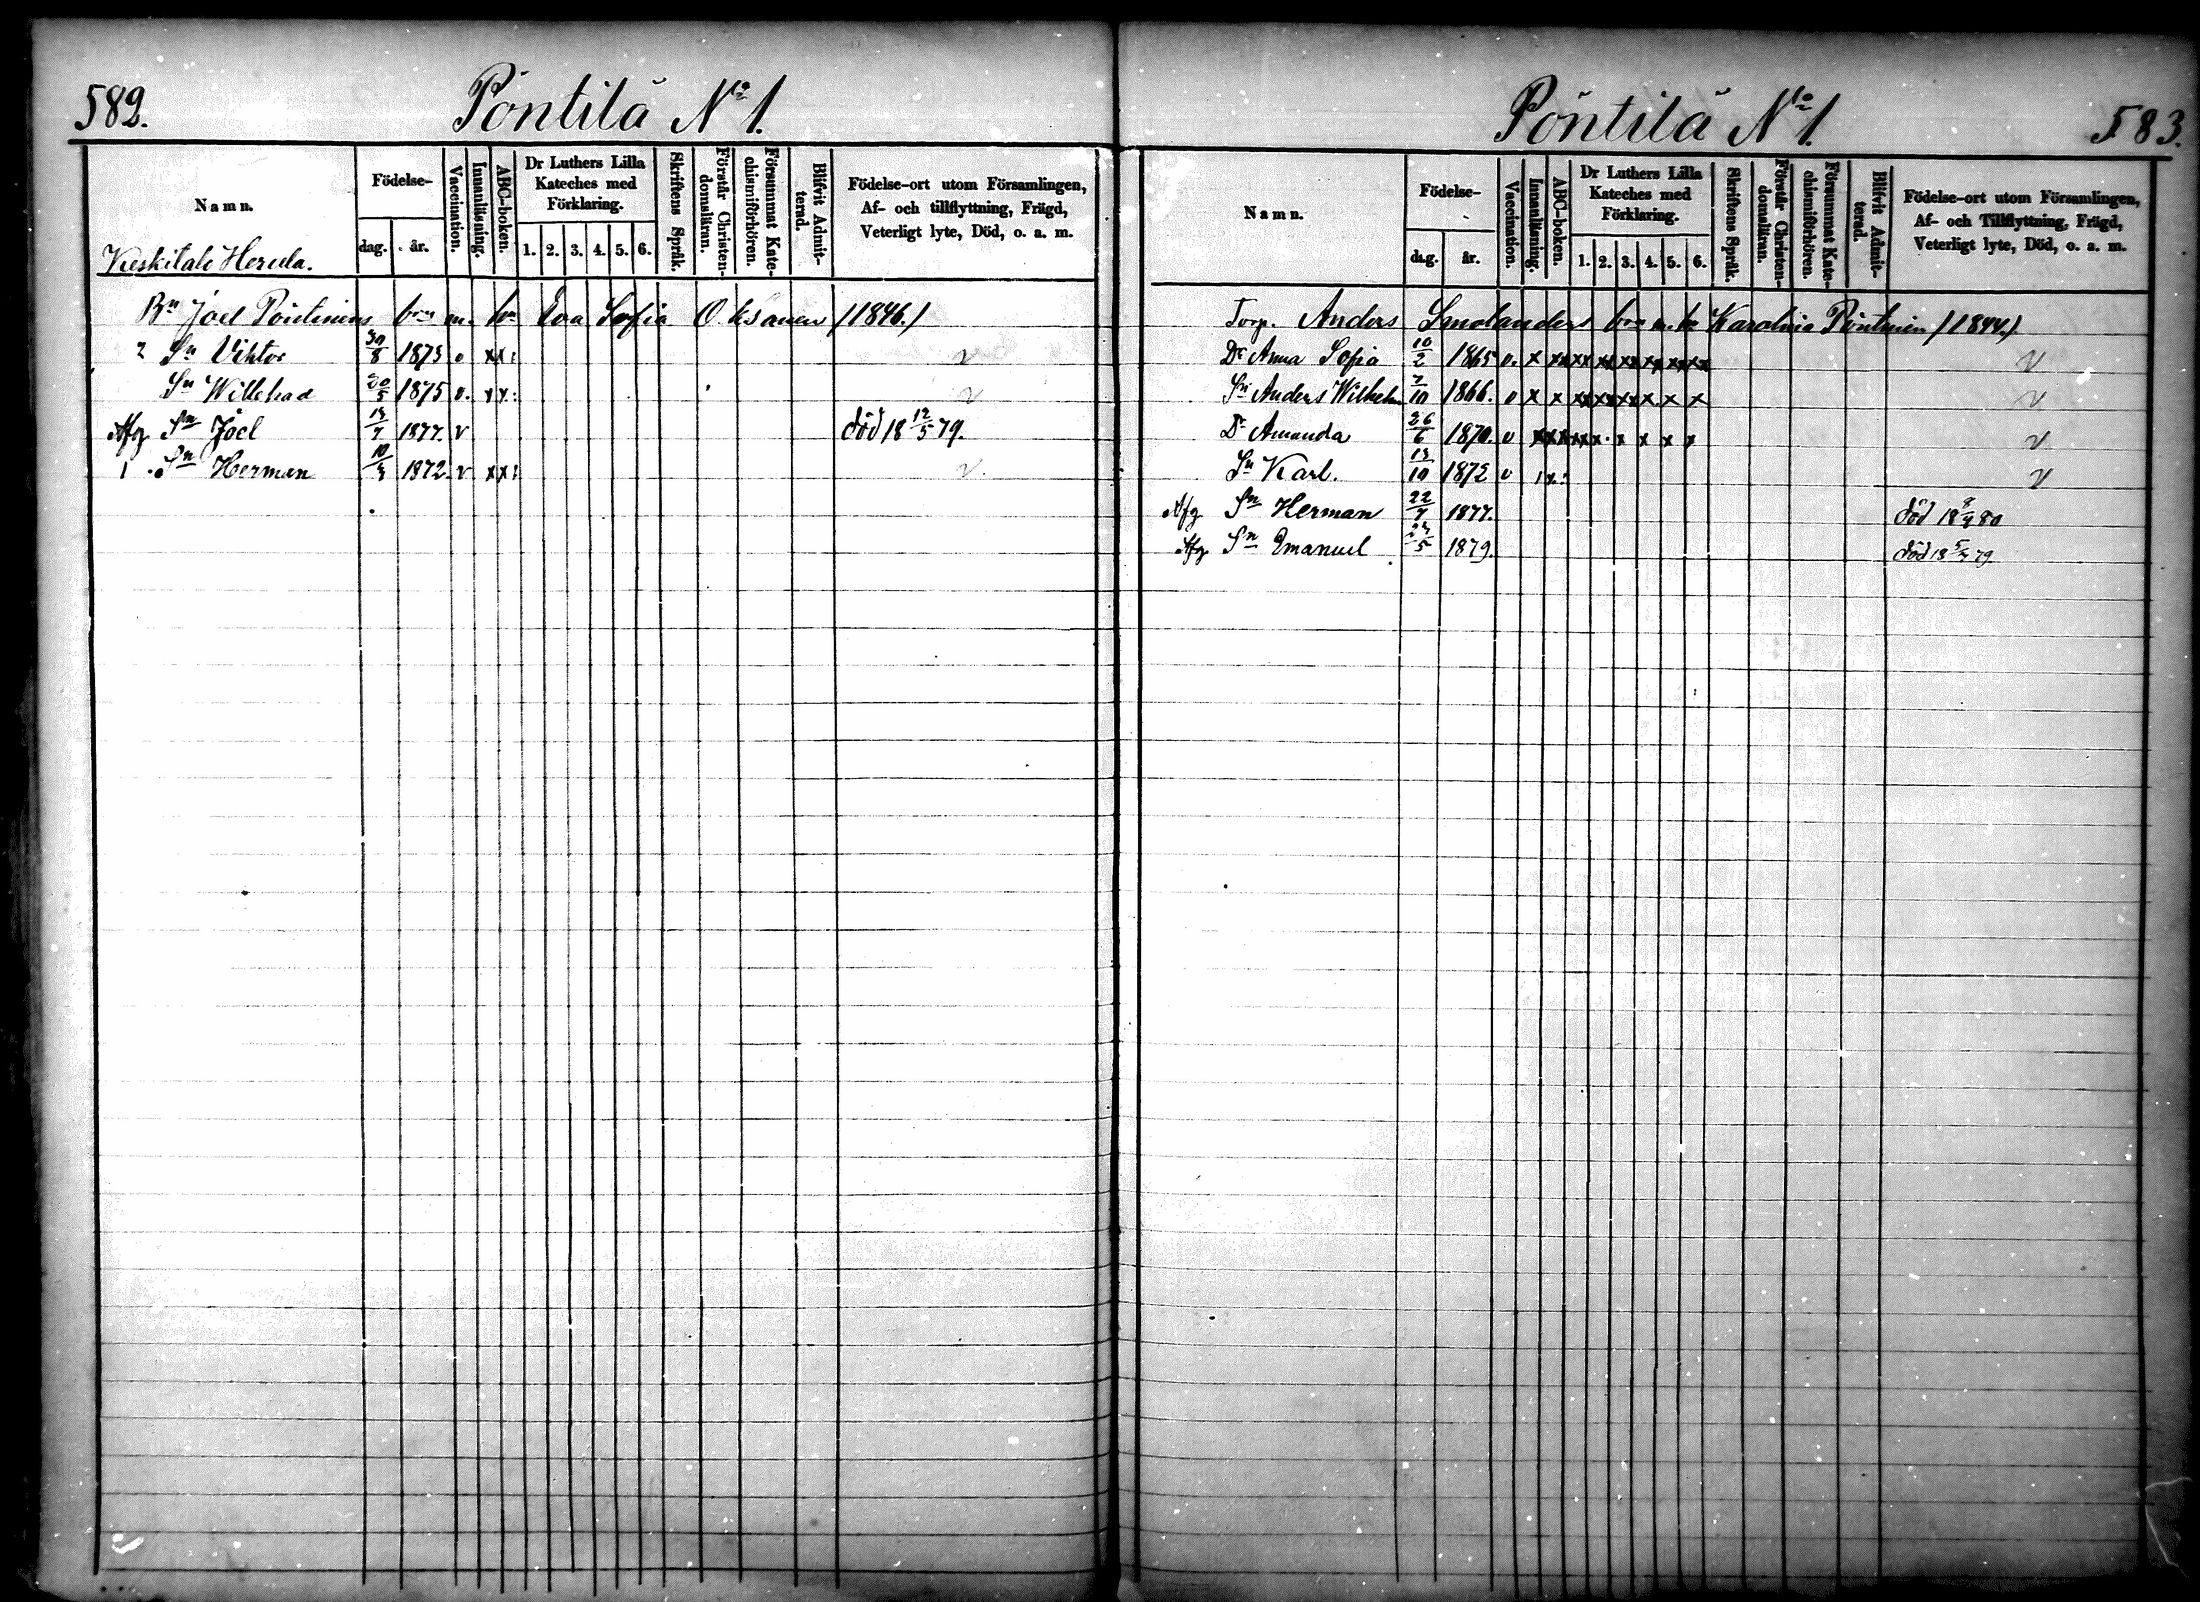 582.
Pöntilä No 1.
Namn.
Födelse-
dag.
år.
Vaccination.
Innanläsning.
ABC-boken.
Dr Luthers Lilla
Kateches med
Förklaring.
1. 2. 3. 4. 5. 6.
Skriftens Språk.
Förstår Christen-
domsläran.
Försummat Kate-
chismiförhören.
Blifvit Admit-
terad.
Födelse-ort utom Församlingen,
Af- och tillflyttning, Frägd,
Veterligt lyte, Död, o. a. m.
Keskitalo Herula.
Bn Joel Pöntinens barn m. hu Eva Sofia Oksanen (1846.)
2 Sn Viktor 30/8 1873 v x x : v
Sn Willehad 20/5 1875 v. x x : v
Afg Sn Joel 13/7 1877. v död 18 12/5 79.
1 Sn Herman 10/3 1872. v x x : v.
Pöntilä No 1.
583.
Namn.
Födelse-
dag.
år.
Vaccination.
Innanläsning.
ABC-boken.
Dr Luthers Lilla
Kateches med
Förklaring.
1. 2. 3. 4. 5. 6.
Skriftens Språk.
Förstår Christen-
domsläran.
Försummat Kate-
chismiförhören.
Blifvit Admit-
terad.
Födelse-ort utom Församlingen,
Af- och Tillflyttning, Frägd,
Veterligt lyte, Död, o. a. m.
Torp. Anders Smolanders barn m. hu Karolina Pöntinen (1844.)
Dr Anna Sofia 10/2 1865 v. v
Sn Anders Wilhelm 7/10 1866. v v
Dr Amanda 26/6 1870. v v
Sn Karl. 13/10 1872 v v
Afg Sn Herman 22/7 1877. död 18 9/4 80
Afg Sn Emanuel 1879. död 18 79.